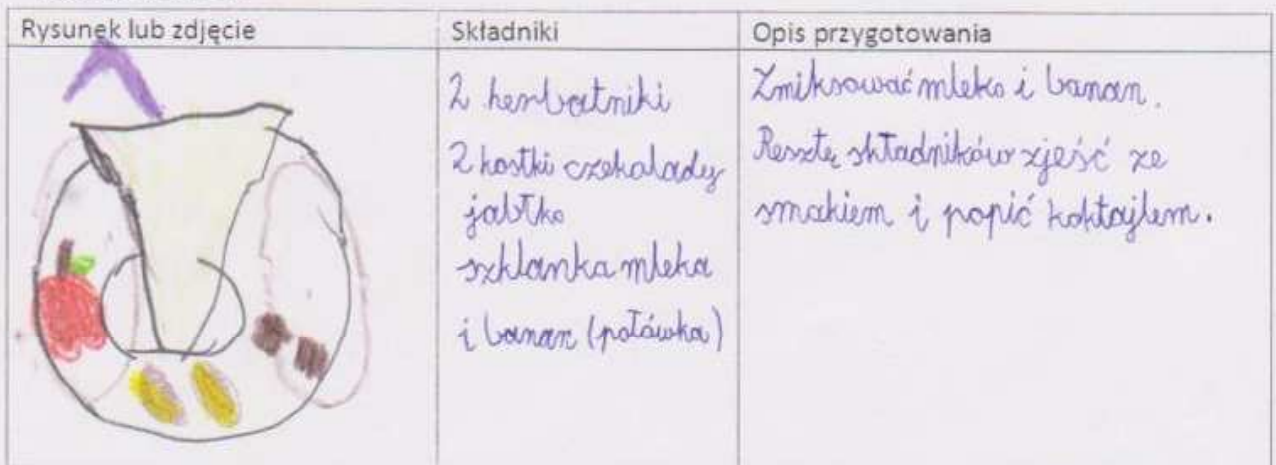 Rysunek lub zdjęcie
Składniki
Opis przygotowania
2 herbatniki
2 kostki czekalady
jabłko
szklanka mleka
i banan (połówka)
Zmiksować mleko i banan.
Resztę składników zjeść ze
smakiem i popić koktajlem.